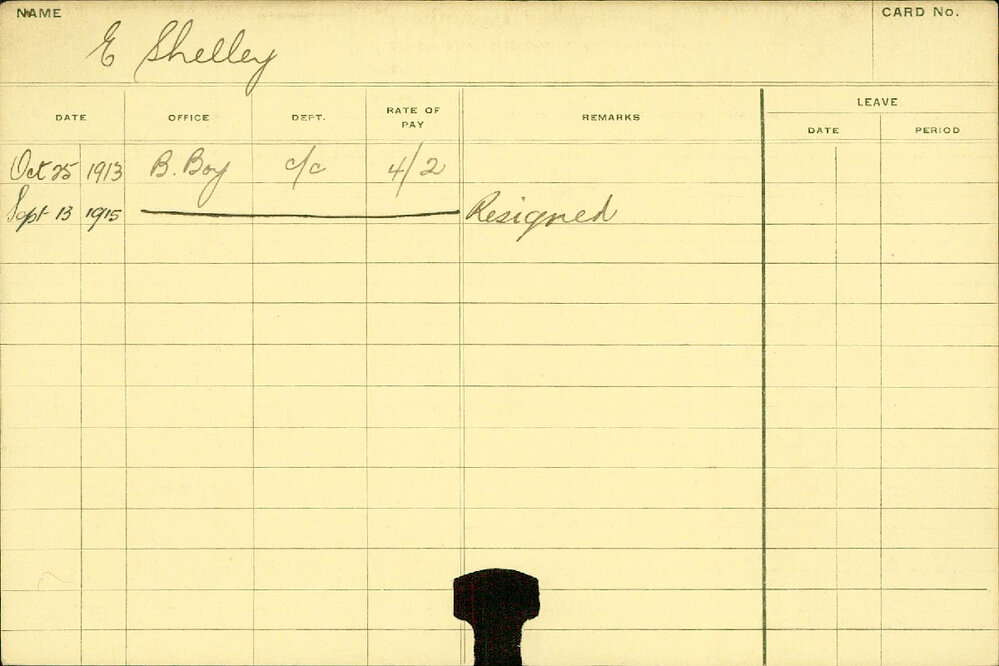 NAME
CARD No.
E Shelley
DATE OFFICE DEPT. RATE OF PAY REMARKS LEAVE
DATE PERIOD
Oct 25 1913 B. Boy c/c 4/2
Sept 13 1915 Resigned